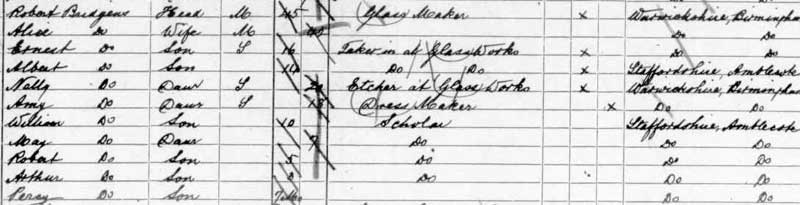 Robert Bridgens Head M 45 Glass Maker x Warwickshire, Birmingham
Alice Do Wife M Do Do
Ernest Do Son S 16 Taker in at Glass Works x Do Do
Albert Do Son 14 Do Do x Staffordshire, Amblecote
Nelly Do Daur S 20 Etcher at Glass Works x Warwickshire, Birmingham
Amy Do Daur S 18 Dress Maker x Do Do
William Do Son 10 Scholar Staffordshire, Amblecote
May Do Daur 7 Do Do Do
Robert Do Son 5 Do Do Do
Arthur Do Son Do Do Do
Percy Do Son 7 Mo Do Do